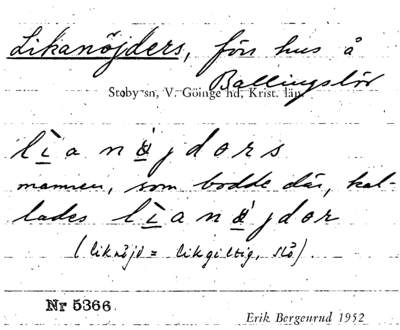 Likanöjders, förr hus å
Ballingslöv
Stoby sn, V. Göinge hd, Krist. län.
lìanǿjdors
mannen, som bodde där, kal-
lades lìanǿjdor
(liknöjd = likgiltig, slö).
Nr 5366.
Erik Bergenrud 1952